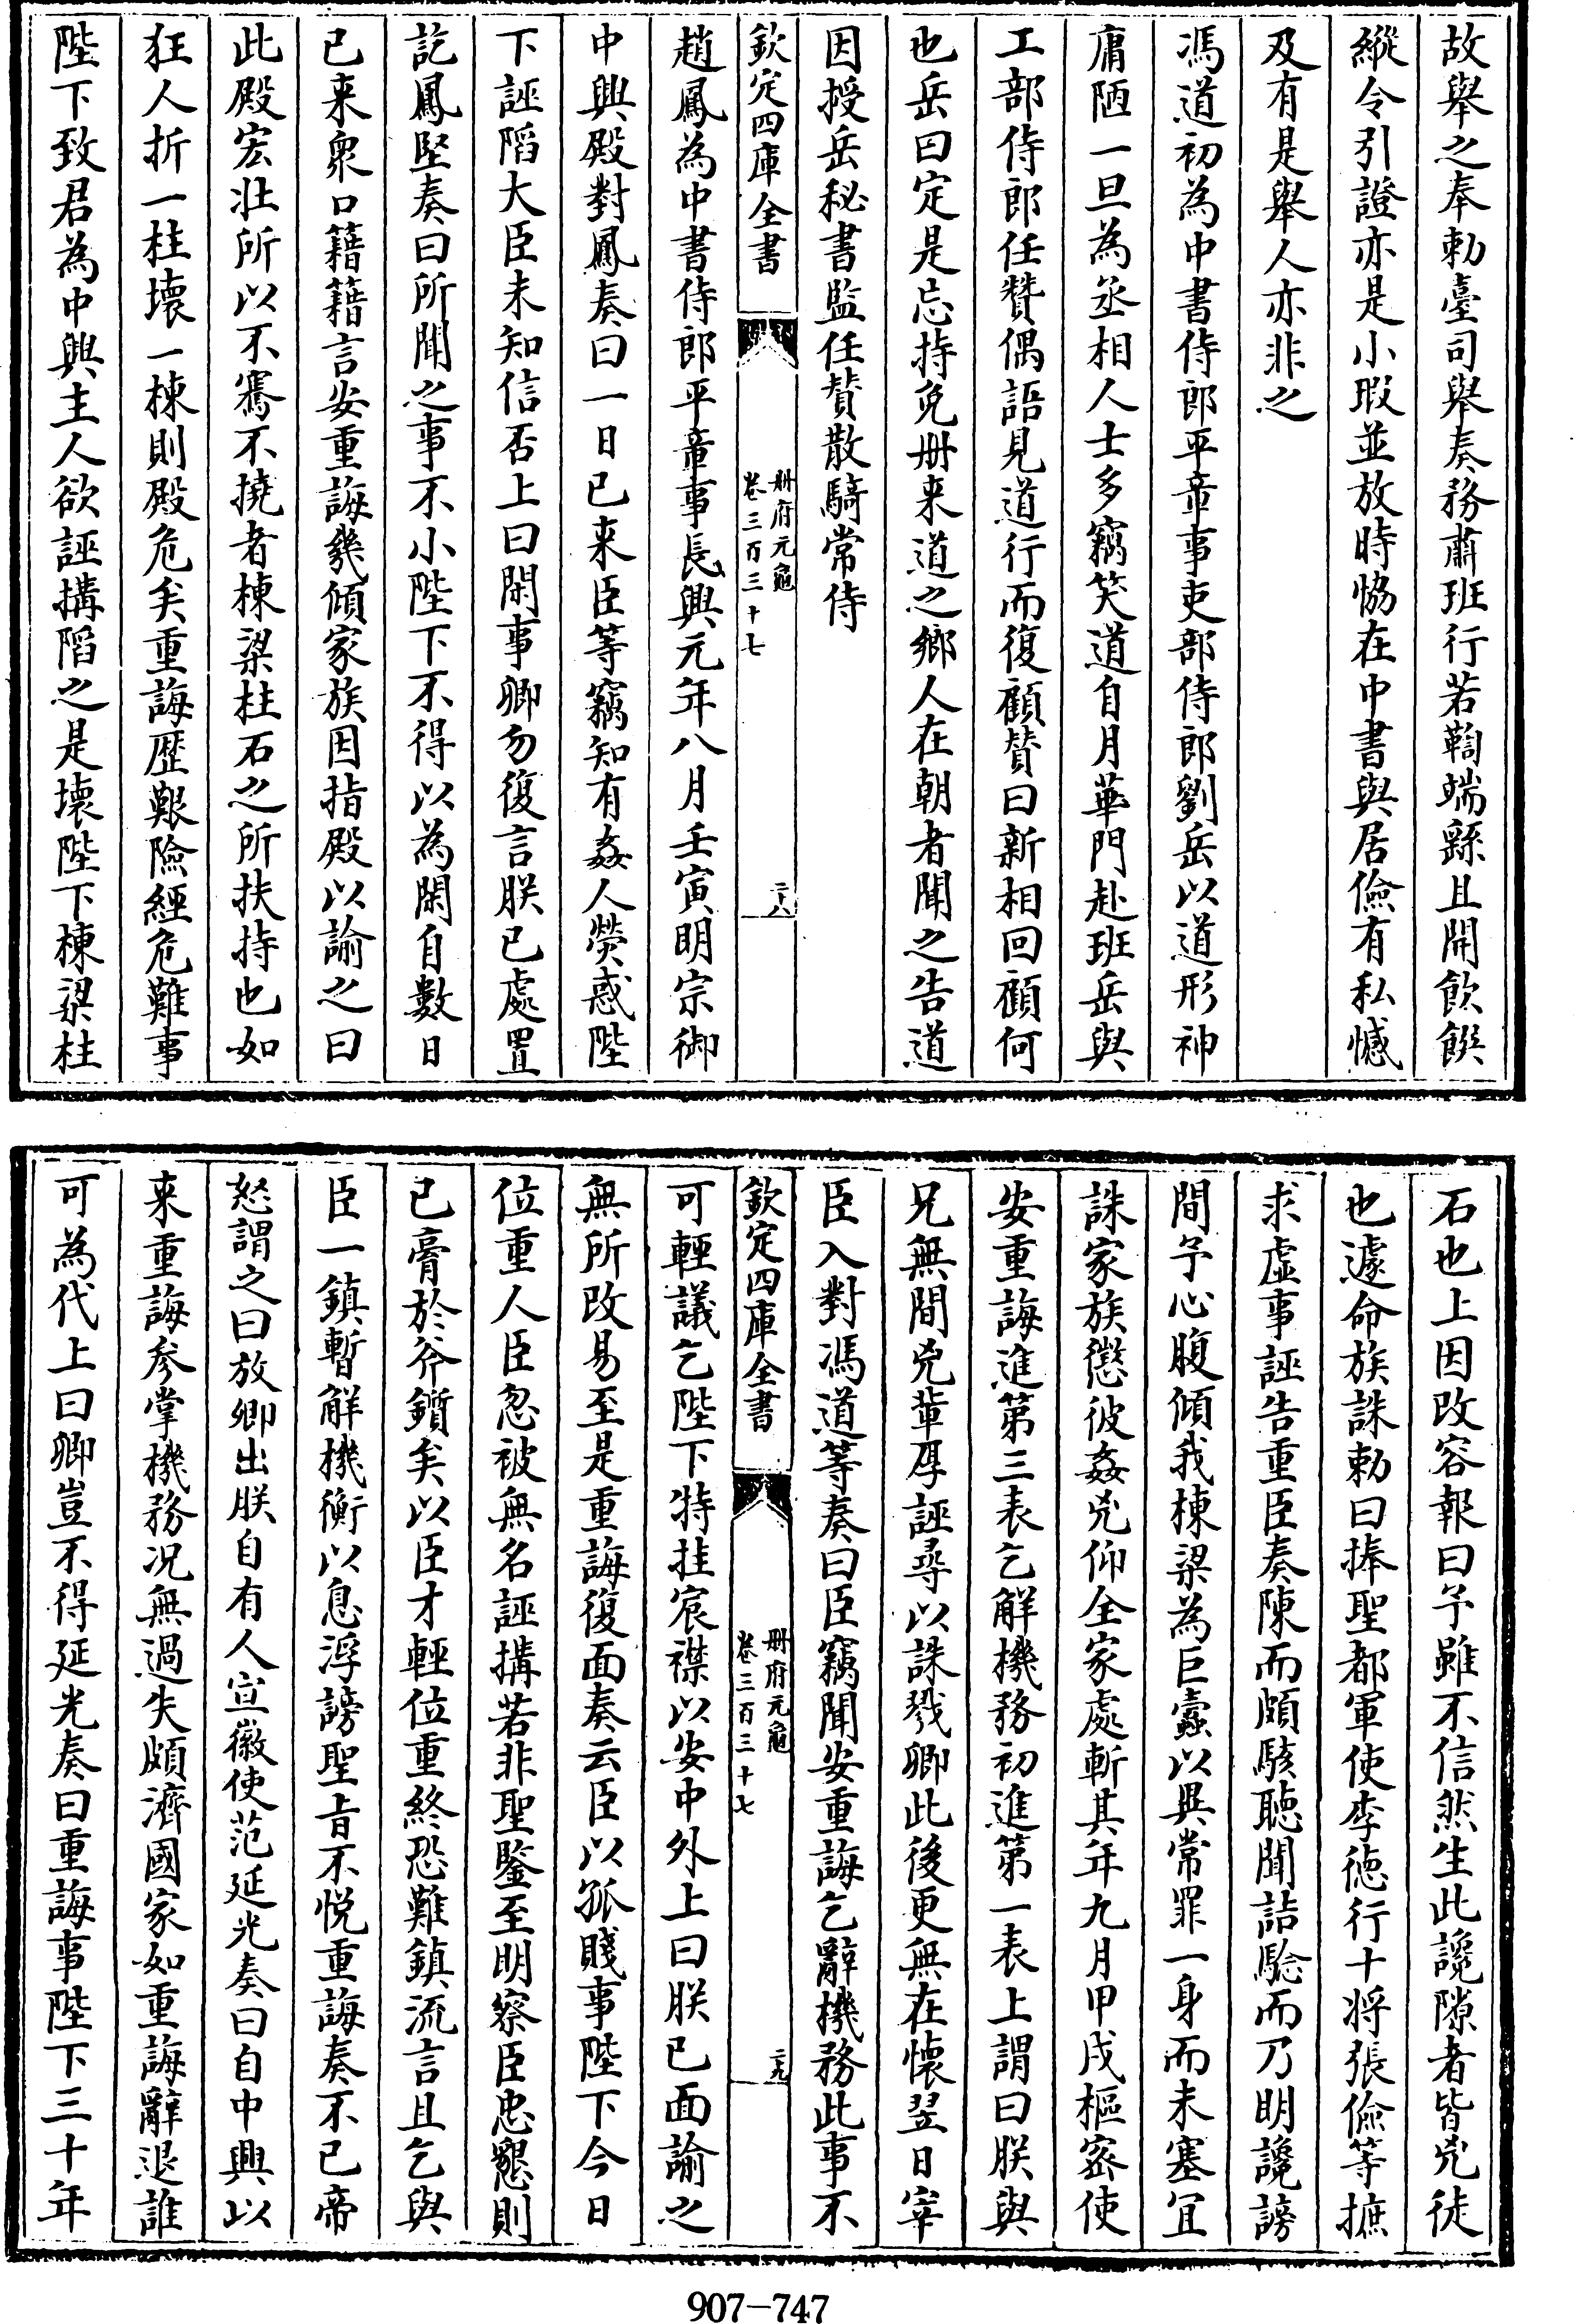 故舉之奉勅臺司舉奏務肅班行若鞫端繇且開飲饌
縱令引證亦是小瑕並放時恊在中書與居儉有私憾
及有是舉人亦非之
馮道初為中書侍郎平章事吏部侍郎劉岳以道形神
庸陋一旦為丞相人士多竊笑道自月華門赴班岳與
工部侍郎任贊偶語見道行而復顧贊曰新相回顧何
也岳曰定是忘持兔册来道之鄉人在朝者聞之告道
因授岳秘書監任贊散騎常侍
欽定四庫全書
册府元龜
卷三百三十七
二八
趙鳳為中書侍郎平章事長興元年八月壬寅明宗御
中興殿對鳳奏曰一日已来臣等竊知有姦人熒惑陛
下誣謟大臣未知信否上曰閑事卿勿復言朕已處置
訖鳳堅奏曰所聞之事不小陛下不得以為閑自數日
已来衆口籍籍言安重誨幾傾家族因指殿以諭之曰
此殿宏壯所以不騫不撓者棟梁柱石之所扶持也如
狂人折一柱壞一棟則殿危矣重誨歴艱險經危難事
陛下致君為中興主人欲誣搆謟之是壞陛下棟梁柱
石也上因改容報曰予雖不信然生此讒隙者皆兇徒
也遽命族誅勅曰捧聖都軍使李德行十将張儉等摭
求虚事誣告重臣奏陳而頗駭聴聞詰驗而乃明讒謗
間予心腹傾我棟梁為巨蠧以異常罪一身而未塞宜
誅家族懲彼姦兇仰全家處斬其年九月甲戌樞密使
安重誨進第三表乞解機務初進第一表上謂曰朕與
兄無間兇輩厚誣尋以誅戮卿此後更無在懐翌日宰
臣入對馮道等奏曰臣竊聞安重誨乞辭機務此事不
欽定四庫全書
册府元龜
卷三百三十七
二九
可輕議乞陛下特挂宸襟以安中外上曰朕已面諭之
無所改易至是重誨復面奏云臣以孤賤事陛下今日
位重人臣忽被無名誣搆若非聖鑒至明察臣忠懇則
已膏於斧鑕矣以臣才輕位重終恐難鎮流言且乞與
臣一鎮暫解機衡以息浮謗聖㫖不悦重誨奏不已帝
怒謂之曰放卿出朕自有人宣徽使范延光奏曰自中興以
来重誨參掌機務况無過失頗濟國家如重誨辭退誰
可為代上曰卿豈不得延光奏曰重誨事陛下三十年
907-747